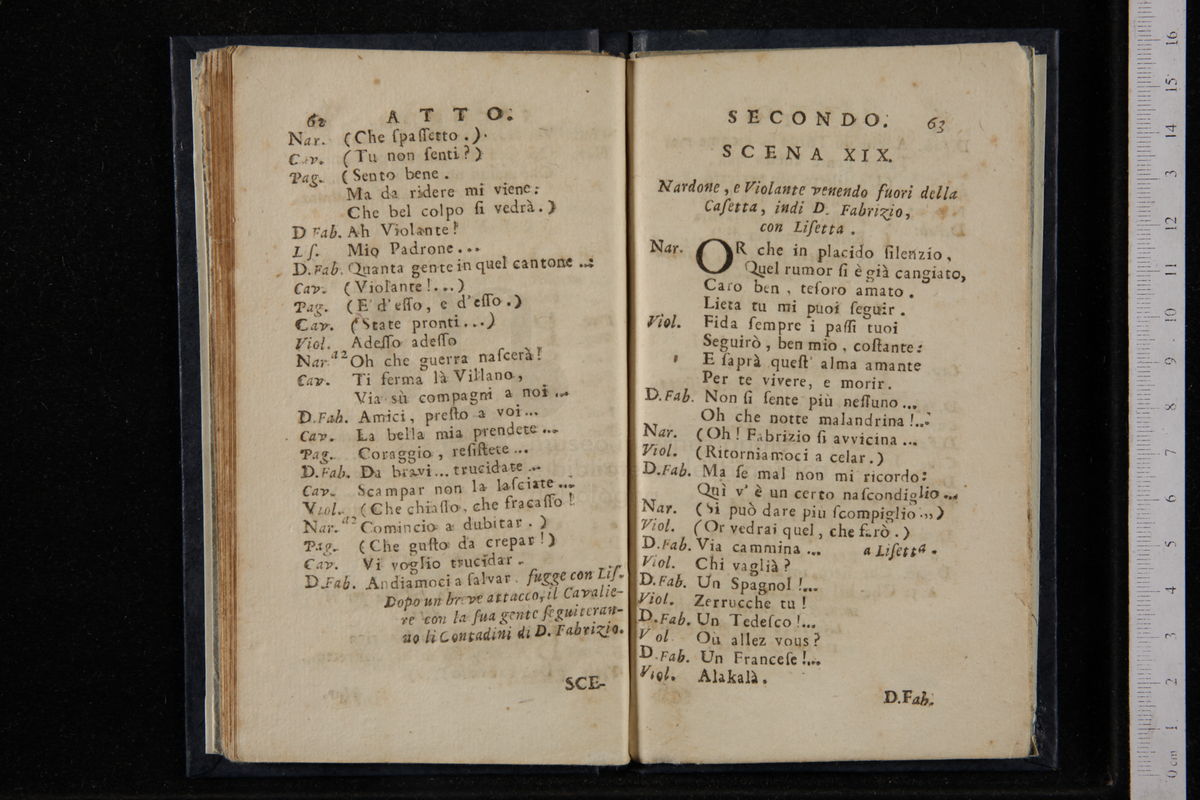 62 ATTO.
Nar. (Che ſpaſſetto.).
Cav. (Tu non ſenti?)
Pag. (Sento bene.
Ma da ridere mi viene:
Che bel colpo ſi vedrà.)
D Fab. Ah Violante!
Lſ. Mio Padrone...
D.Fab. Quanta gente in quel cantone ...
Cav. (Violante!...)
Pag. (E' d'eſſo, e d'eſſo.)
Cav. (State pronti...)
Viol. Adeſſo adeſſo
Nar. a2 Oh che guerra naſcerà!
Cav. Ti ferma là Villano,
Via sù compagni a noi ...
D.Fab. Amici, preſto a voi...
Cav. La bella mia prendete ...
Pag. Coraggio, reſiſtete...
D.Fab. Da bravi... trucidate ...
Cav. Scampar non la laſciate ...
Viol. (Che chiaſſo, che fracaſſo!
Nar. a2 Comincio a dubitar.)
Pag. (Che guſto da crepar!)
Cav. Vi voglio trucidar.
D.Fab. Andiamoci a ſalvar. fugge con Liſ.
Dopo un breve attacco, il Cavalie-
re con la ſua gente ſeguiteran-
no li Contadini di D. Fabrizio.
SCE-
SECONDO. 63
SCENA XIX.
Nardone, e Violante venendo fuori della
Caſetta, indi D. Fabrizio,
con Liſetta.
Nar. OR che in placido ſilenzio,
Quel rumor ſi è già cangiato,
Caro ben, teſoro amato.
Lieta tu mi puoi ſeguir.
Viol. Fida ſempre i paſſi tuoi
Seguirò, ben mio, coſtante:
E ſaprà queſt' alma amante
Per te vivere, e morir.
D.Fab. Non ſi ſente più neſſuno ...
Oh che notte malandrina!...
Nar. (Oh! Fabrizio ſi avvicina ...
Viol. (Ritorniamoci a celar.)
D.Fab. Ma ſe mal non mi ricordo:
Quì v'è un certo naſcondiglio...
Nar. (Si può dare più ſcompiglio...)
Viol. (Or vedrai quel, che farò.)
D.Fab. Via cammina ... a Liſetta.
Viol. Chi vaglià?
D.Fab. Un Spagnol!...
Viol. Zerrucche tu!
D.Fab. Un Tedeſco!...
V ol Où allez vous?
D.Fab. Un Franceſe!...
Viol. Alakalà.
D.Fab.
0 cm 1 2 3 4 5 6 7 8 9 10 11 12 13 14 15 16